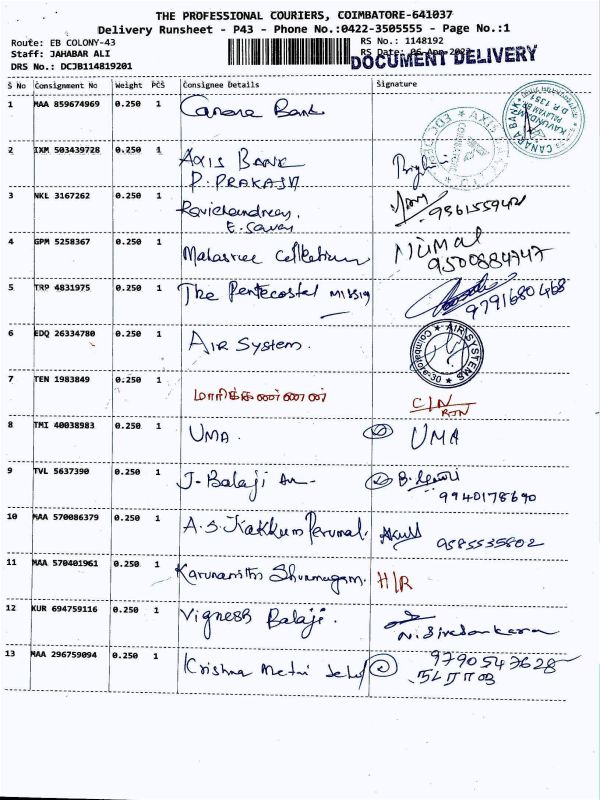 THE PROFESSIONAL COURIERS, COIMBATORE-641037
Delivery Runsheet - P43 - Phone No.:0422-3505555 - Page No.:1
Route: EB COLONY-43
RS No.: 1148192
Staff: JAHABAR ALI
RS Date:
DOCUMENT DELIVERY
DRS No.: DCJB114819201
S No Consignment No Weight PCS Consignee Details Signature
1 MAA 859674969 0.250 1 Canara Bank
CANARA BANK
2 IXM 503439728 0.250 1 AXIS BANK
P. PRAKASH
AXIS
3 NKL 3167262 0.250 1 Ravichandran,
E. Savan
4 GPM 5258367 0.250 1 Malasree Collection Nirmal
9500884747
5 TRP 4831975 0.250 1 The Pentecostal MISSIO
9791680468
6 EDQ 26334780 0.250 1 AIR System.
AIR SYSTEMS Coimbatore-30
7 TEN 1983849 0.250 1 மாரிக்கண்ணன் C/N
RTN
8 TMI 40038983 0.250 1 UMA. UMA
9 TVL 5637390 0.250 1 J. Balaji
9940178690
10 MAA 570086379 0.250 1 A.S. Kakkum Perumal.
9585535802
11 MAA 570401961 0.250 1 Karunanithi Shunmugam. H/R
12 KUR 694759116 0.250 1 Vignesh Balaji. N. Sivasankaran
13 MAA 296759094 0.250 1 Krishna Metri 9790547628
நடராஜ